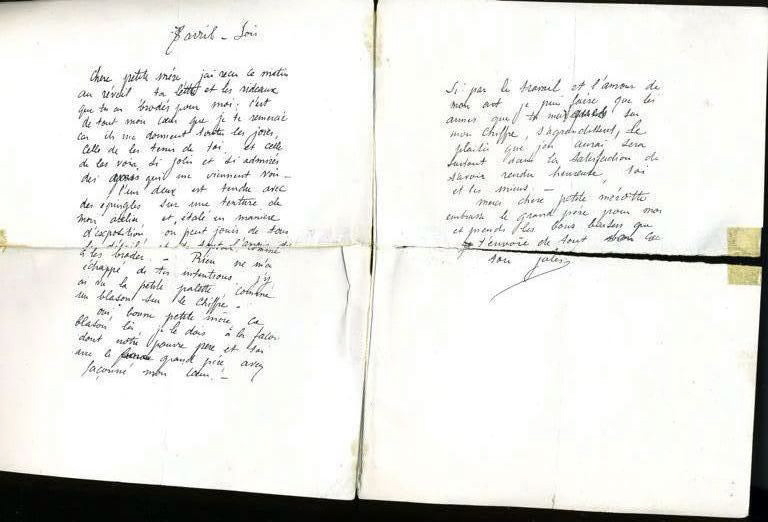 avril - Soir
Chère petite mère j'ai reçu ce matin
au réveil ta lettre et les rideaux
que tu as brodés pour moi; c'est
de tout mon cœur que je te remercie
car ils me donnent toutes les joies,
celle de les tenir de toi et celle
de les voir si jolis et si admirés
des qui me viennent voir -
l'un deux est tendu avec
des épingles sur une tenture de
mon atelier et étalé en manière
d'exposition on peut jouir de tous
à les broder. - Rien ne m'a
échappé de tes intentions j'y
ai vu la petite palette comme
un blason sur le chiffre.
oui bonne petite mère ce
blason là je le dois à la façon
dont notre pauvre père et toi
avec le grand père avez
façonné mon cœur! -
Si par le travail et l'amour de
mon art je puis faire que les
armes que tu sur
mon chiffre, s'agrandissent, le
plaisir que j'en aurai sera
surtout dans la satisfaction de
savoir rendu heureuse, toi
et les miens. -
merci chère petite mérotte
embrasse le grand père pour moi
et prends les bons baisers que
t'envoie de tout
ton jules